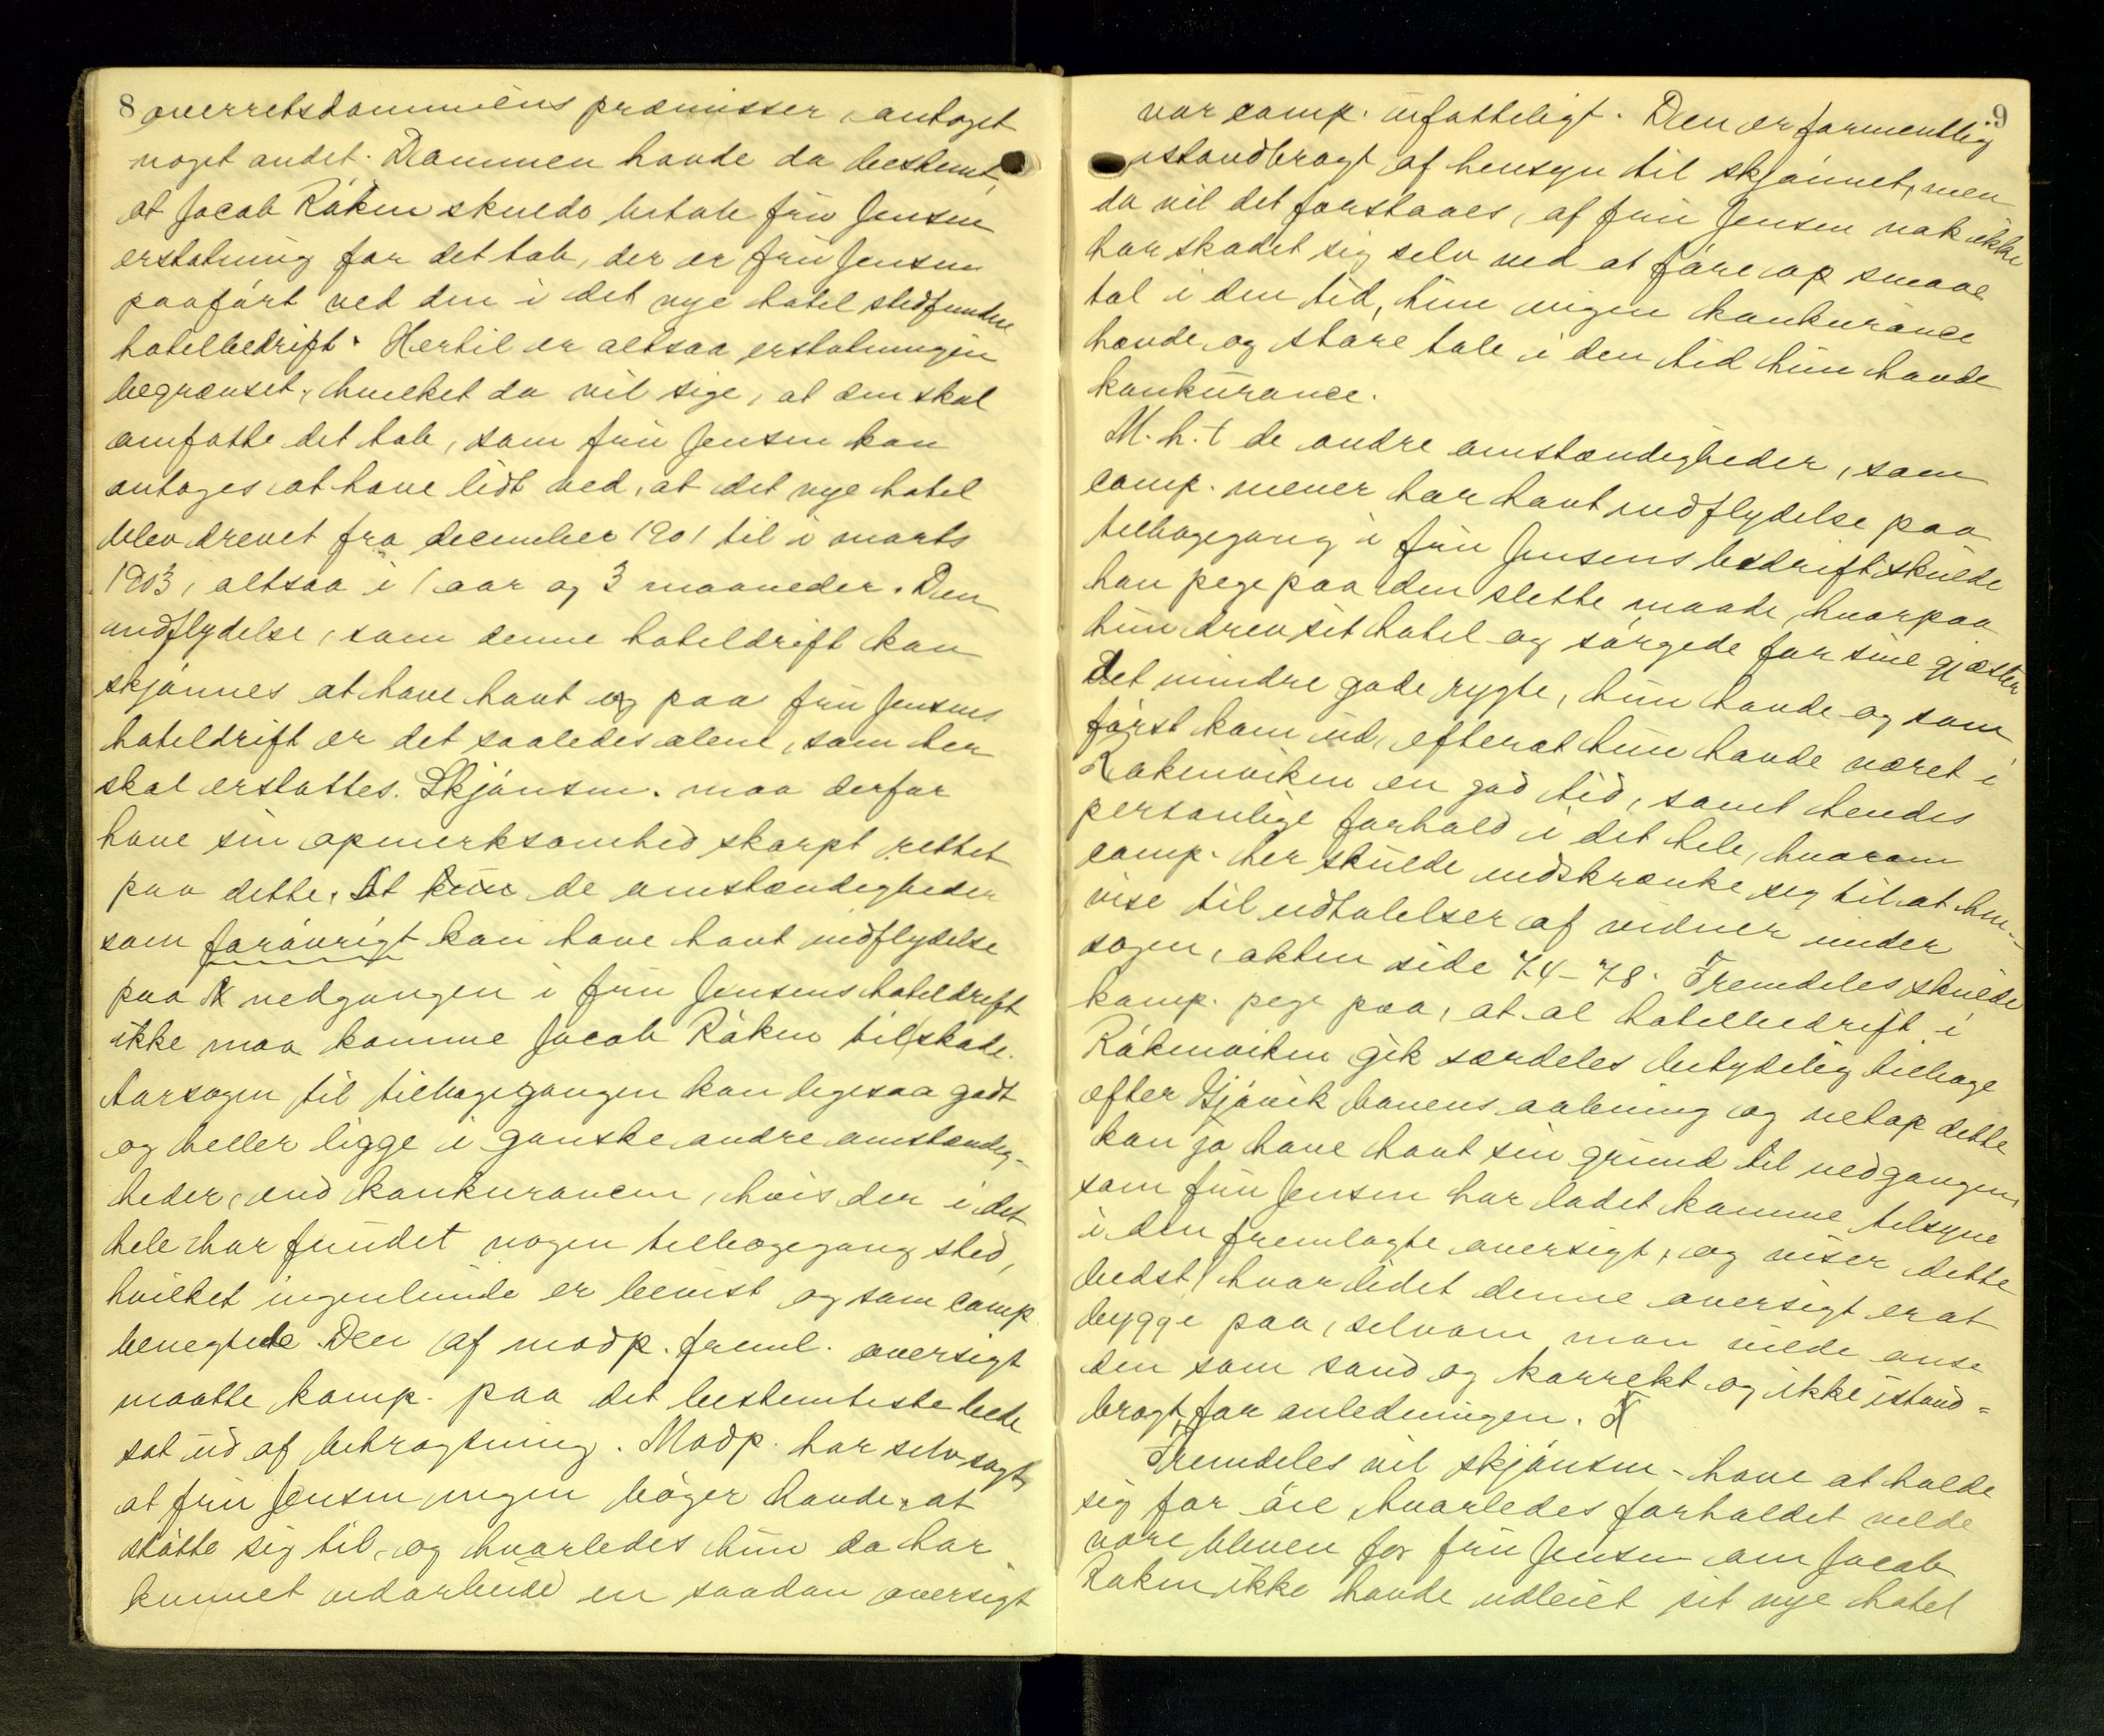 8 overretsdommens præmisser antaget
noget andet. Dommen havde da bestemt,
at Jacob Røken skulde betale fru Jensen
erstatning for det tab, der er fru Jensen
paaført ved den i det nye hotel stedfundne
hotelbedrift. Hertil er altsaa erstatningen
begrænset, hvilket da vil sige, at den skal
omfatte det tab, som fru Jensen kan
antages at have lidt ved, at det nye hotel
blev drevet fra december 1901 til i marts
1903, altsaa i 1 aar og 3 maaneder. Den
indflydelse, som denne hoteldrift kan
skjønnes at have havt og paa fru Jensens
hoteldrift er det saaledes alene, som her
skal erstattes. Skjønsm. maa derfor
have sin opmerksomhed skarpt rettet
paa dette. At de omstændigheder
som forøvrigt kan have havt indflydelse
paa nedgangen i fru Jensens hoteldrift
ikke maa komme Jacob Røken til skade.
Aarsagen til tilbagegangen kan ligesaa godt
og heller ligge i ganske andre omstændig-
heder, end konkurancen, hvis der i det
hele har fundet nogen tilbagegang sted,
hvilket ingenlunde er bevist og som comp.
benegtede. Den af modp. freml. oversigt
maatte komp. paa det bestemteste bede
sat ud af betragtning. Modp. har selv sagt,
at fru Jensen ingen bøger havde at
støtte sig til, og hvorledes hun da har
kunnet udarbeide en saadan oversigt
9
var comp. ufatteligt. Den er formentlig
istandbragt af hensyn til skjønnet, men
da vil det forstaaes, at fru Jensen nok ikke
har skadet sig selv ved at føre op smaae
tal i den tid, hun ingen konkurance
havde og store tale i den tid hun havde
konkurance.
M. h. t de andre omstændigheder, som
comp. mener har havt indflydelse paa
tilbagegang i fru Jensens bedrift skulde
han pege paa den slette maade, hvorpaa
hun drev sit hotel og sørgede for sine gjæster
Det mindre gode rygte, hun havde og som
først kom ud, efterat hun havde været i
Røkenviken en god tid, samt hendes
personlige forhold i det hele, hvorom
comp. her skulde indskrænke sig til at hen-
vise til udtalelser af vidner under
sagen, akten side 74-78. Fremdeles skulde
komp. pege paa, at al hotelbedrift i
Røkenviken gik særdeles betydelig tilbage
efter Gjøvik banens aabning og netop dette
kan jo have havt sin grund til nedgangen,
som fru Jensen har ladet komme tilsyne
i den fremlagte oversigt, og viser dette
bedst, hvor lidet denne oversigt er at
bygge paa, selvom man vilde anse
den som sand og korrekt og ikke istand-
bragt for anledningen.
Fremdeles vil skjønsm. have at holde
sig for øie, hvorledes forholdet vilde
være bleven for fru Jensen om Jacob
Røken ikke havde udleiet sit nye hotel